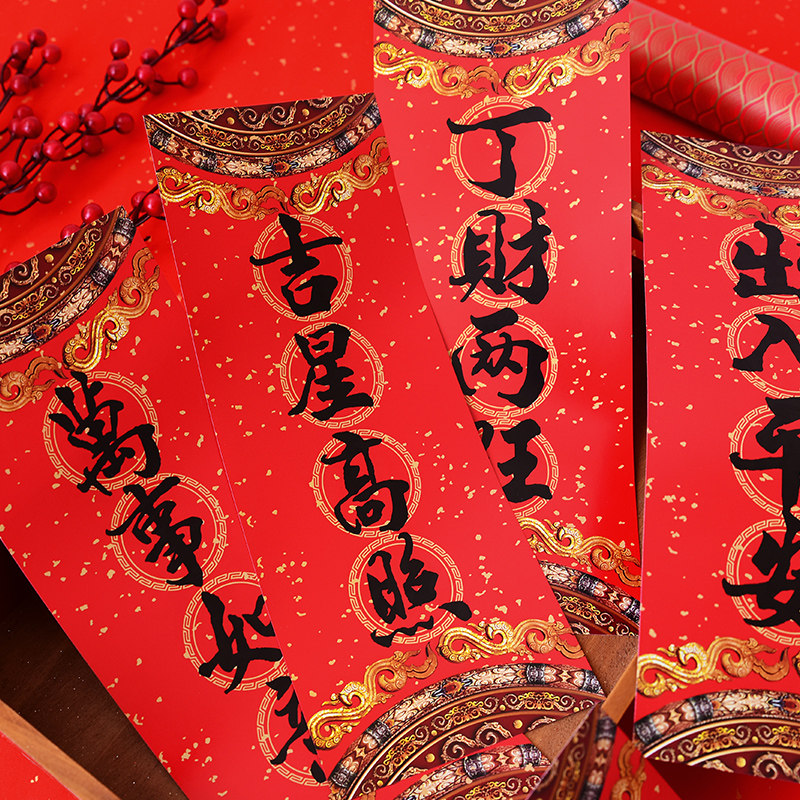 萬事如意
吉星高照
丁財两旺
出入平安